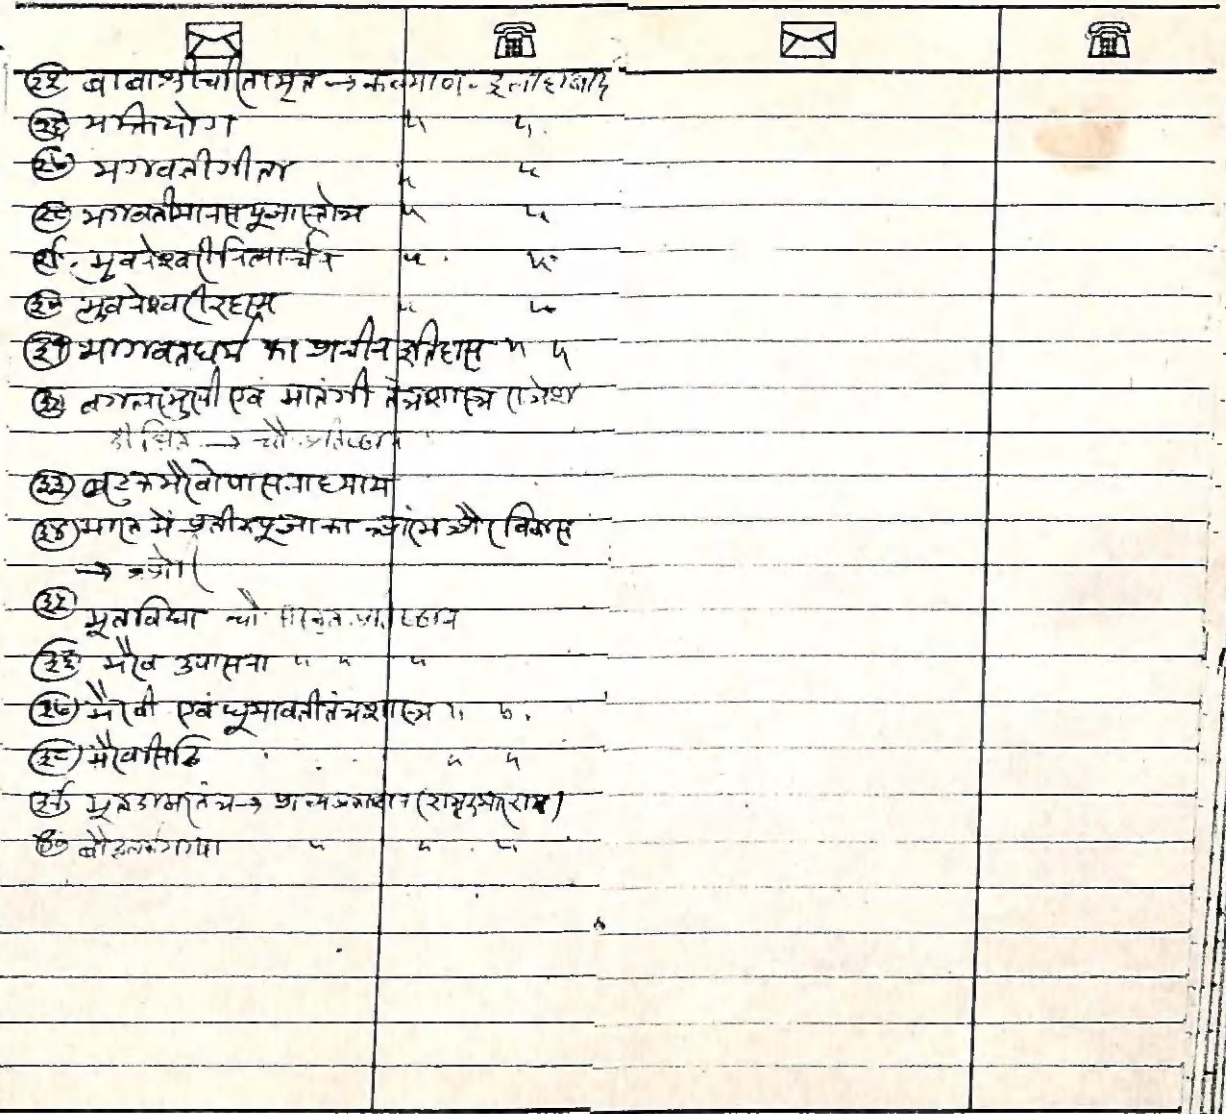 २५ बाबाश्रीचरितामृत → कल्याण - इलाहाबाद
२६ भक्तियोग " "
२७ भगवतीगीता " "
२८ भगवतीमानसपूजास्तोत्र " "
२९. भुवनेश्वरीनित्यार्चन " "
३० भुवनेश्वरीरहस्य " "
३१ भागवतधर्म का प्राचीन इतिहास " "
३२ बगलामुखी एवं मातंगी तंत्रशास्त्र राजेश
दीक्षित → चौ.
३३ बटुकभैरवोपासनाध्याय
३४ भारत में प्रतीकपूजा का आरंभ और विकास
→
३५
भूतविद्या चौ
३६ भैरव उपासना " " "
३७ भैरवी एवं धूमावतीतंत्रशास्त्र " "
३८ भैरवसिद्धि " "
३९ भूतडामरतंत्र → प्राच्यप्रकाशन (रामकुमारराय)
४० " " "